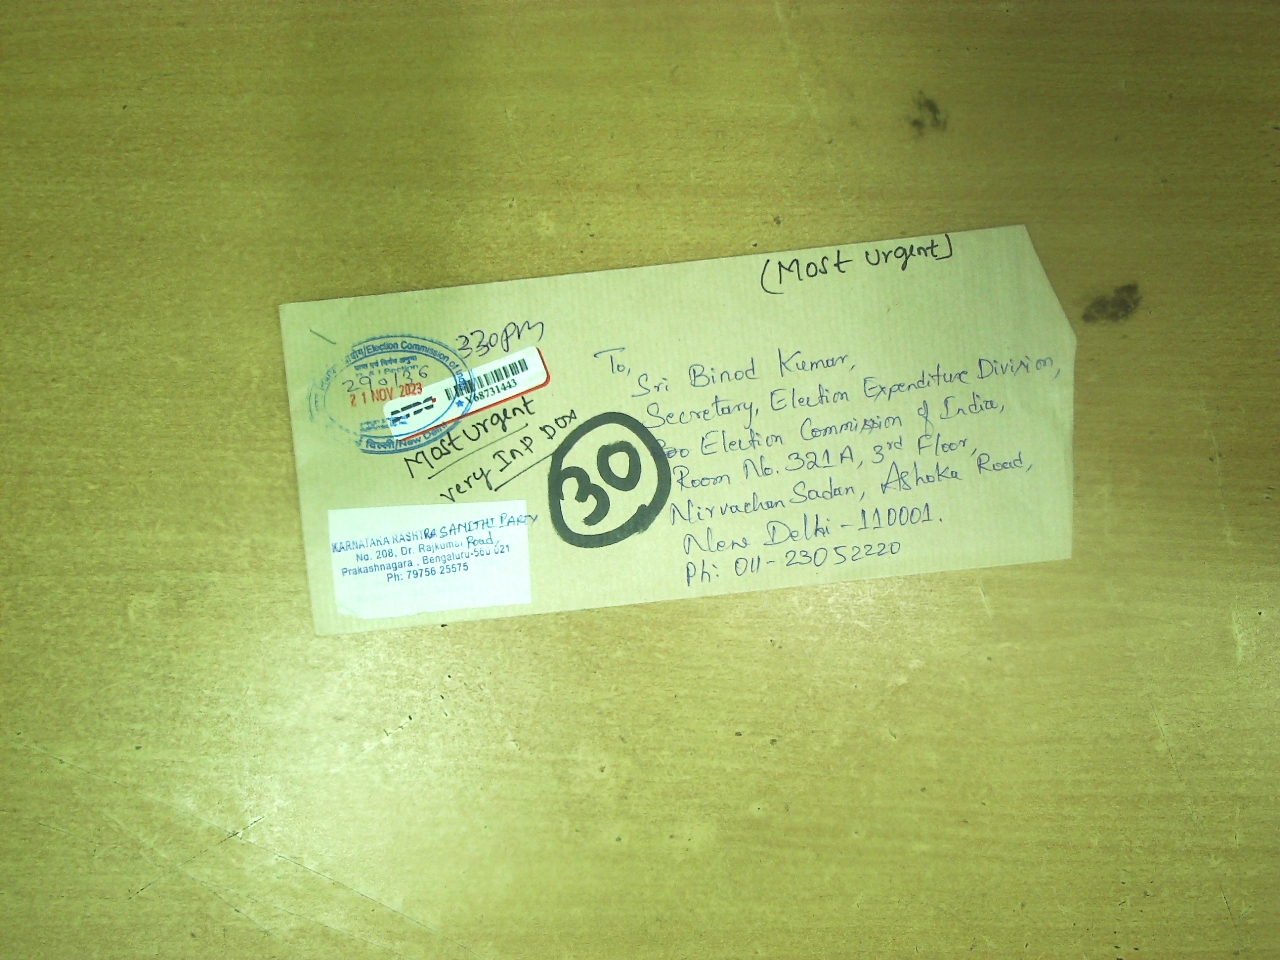 (Most urgent)
330pm
/Election Commission of
290136
21 NOV 2023
दिल्ली/New Delhi
X68731443
Most urgent
very Imp Dox
30
To,
Sri Binod Kumar,
Secretary, Election Expenditure Division,
Election Commission of India,
Room No. 321A, 3rd Floor,
Nirvachan Sadan, Ashoka Road,
New Delhi - 110001.
Ph: 011-23052220
KARNATAKA RASHTRA SAMITHI PARTY
No. 208, Dr. Rajkumar Road,
Prakashnagara, Bengaluru-560 021
Ph: 79756 25575